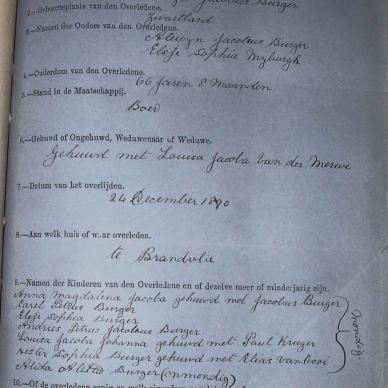 Jacobus Burger
2.—Geboorteplaats van den Overledene.
Zwartland
3.—Namen der Ouders van den Overledene.
Alewyn Jacobus Burger
Elsje Sophia Myburgh
4.—Ouderdom van den Overledene.
66 Jaren 8 Maanden
5.—Stand in de Maatschappij.
Boer
6.—Gehuwd of Ongehuwd, Weduwenaar of Weduwe.
Gehuwd met Louisa Jacoba van der Merwe
7.—Datum van het overlijden.
24 December 1890
8.—Aan welk huis of waar overleden.
te Brandvlie
9.—Namen der Kinderen van den Overledene en of dezelve meer of minderjarig zijn.
Anna Magdalena Jacoba gehuwd met Jacobus Burger
Carel Petrus Burger
Elsje Sophia Burger
Andries Petrus Jacobus Burger
Louisa Jacoba Johanna gehuwd met Paul Kruger
Hester Sophia Burger gehuwd met Elias van
Alida Aletta Burger (onmondig)
mondig
10.—Of de overledene eenig